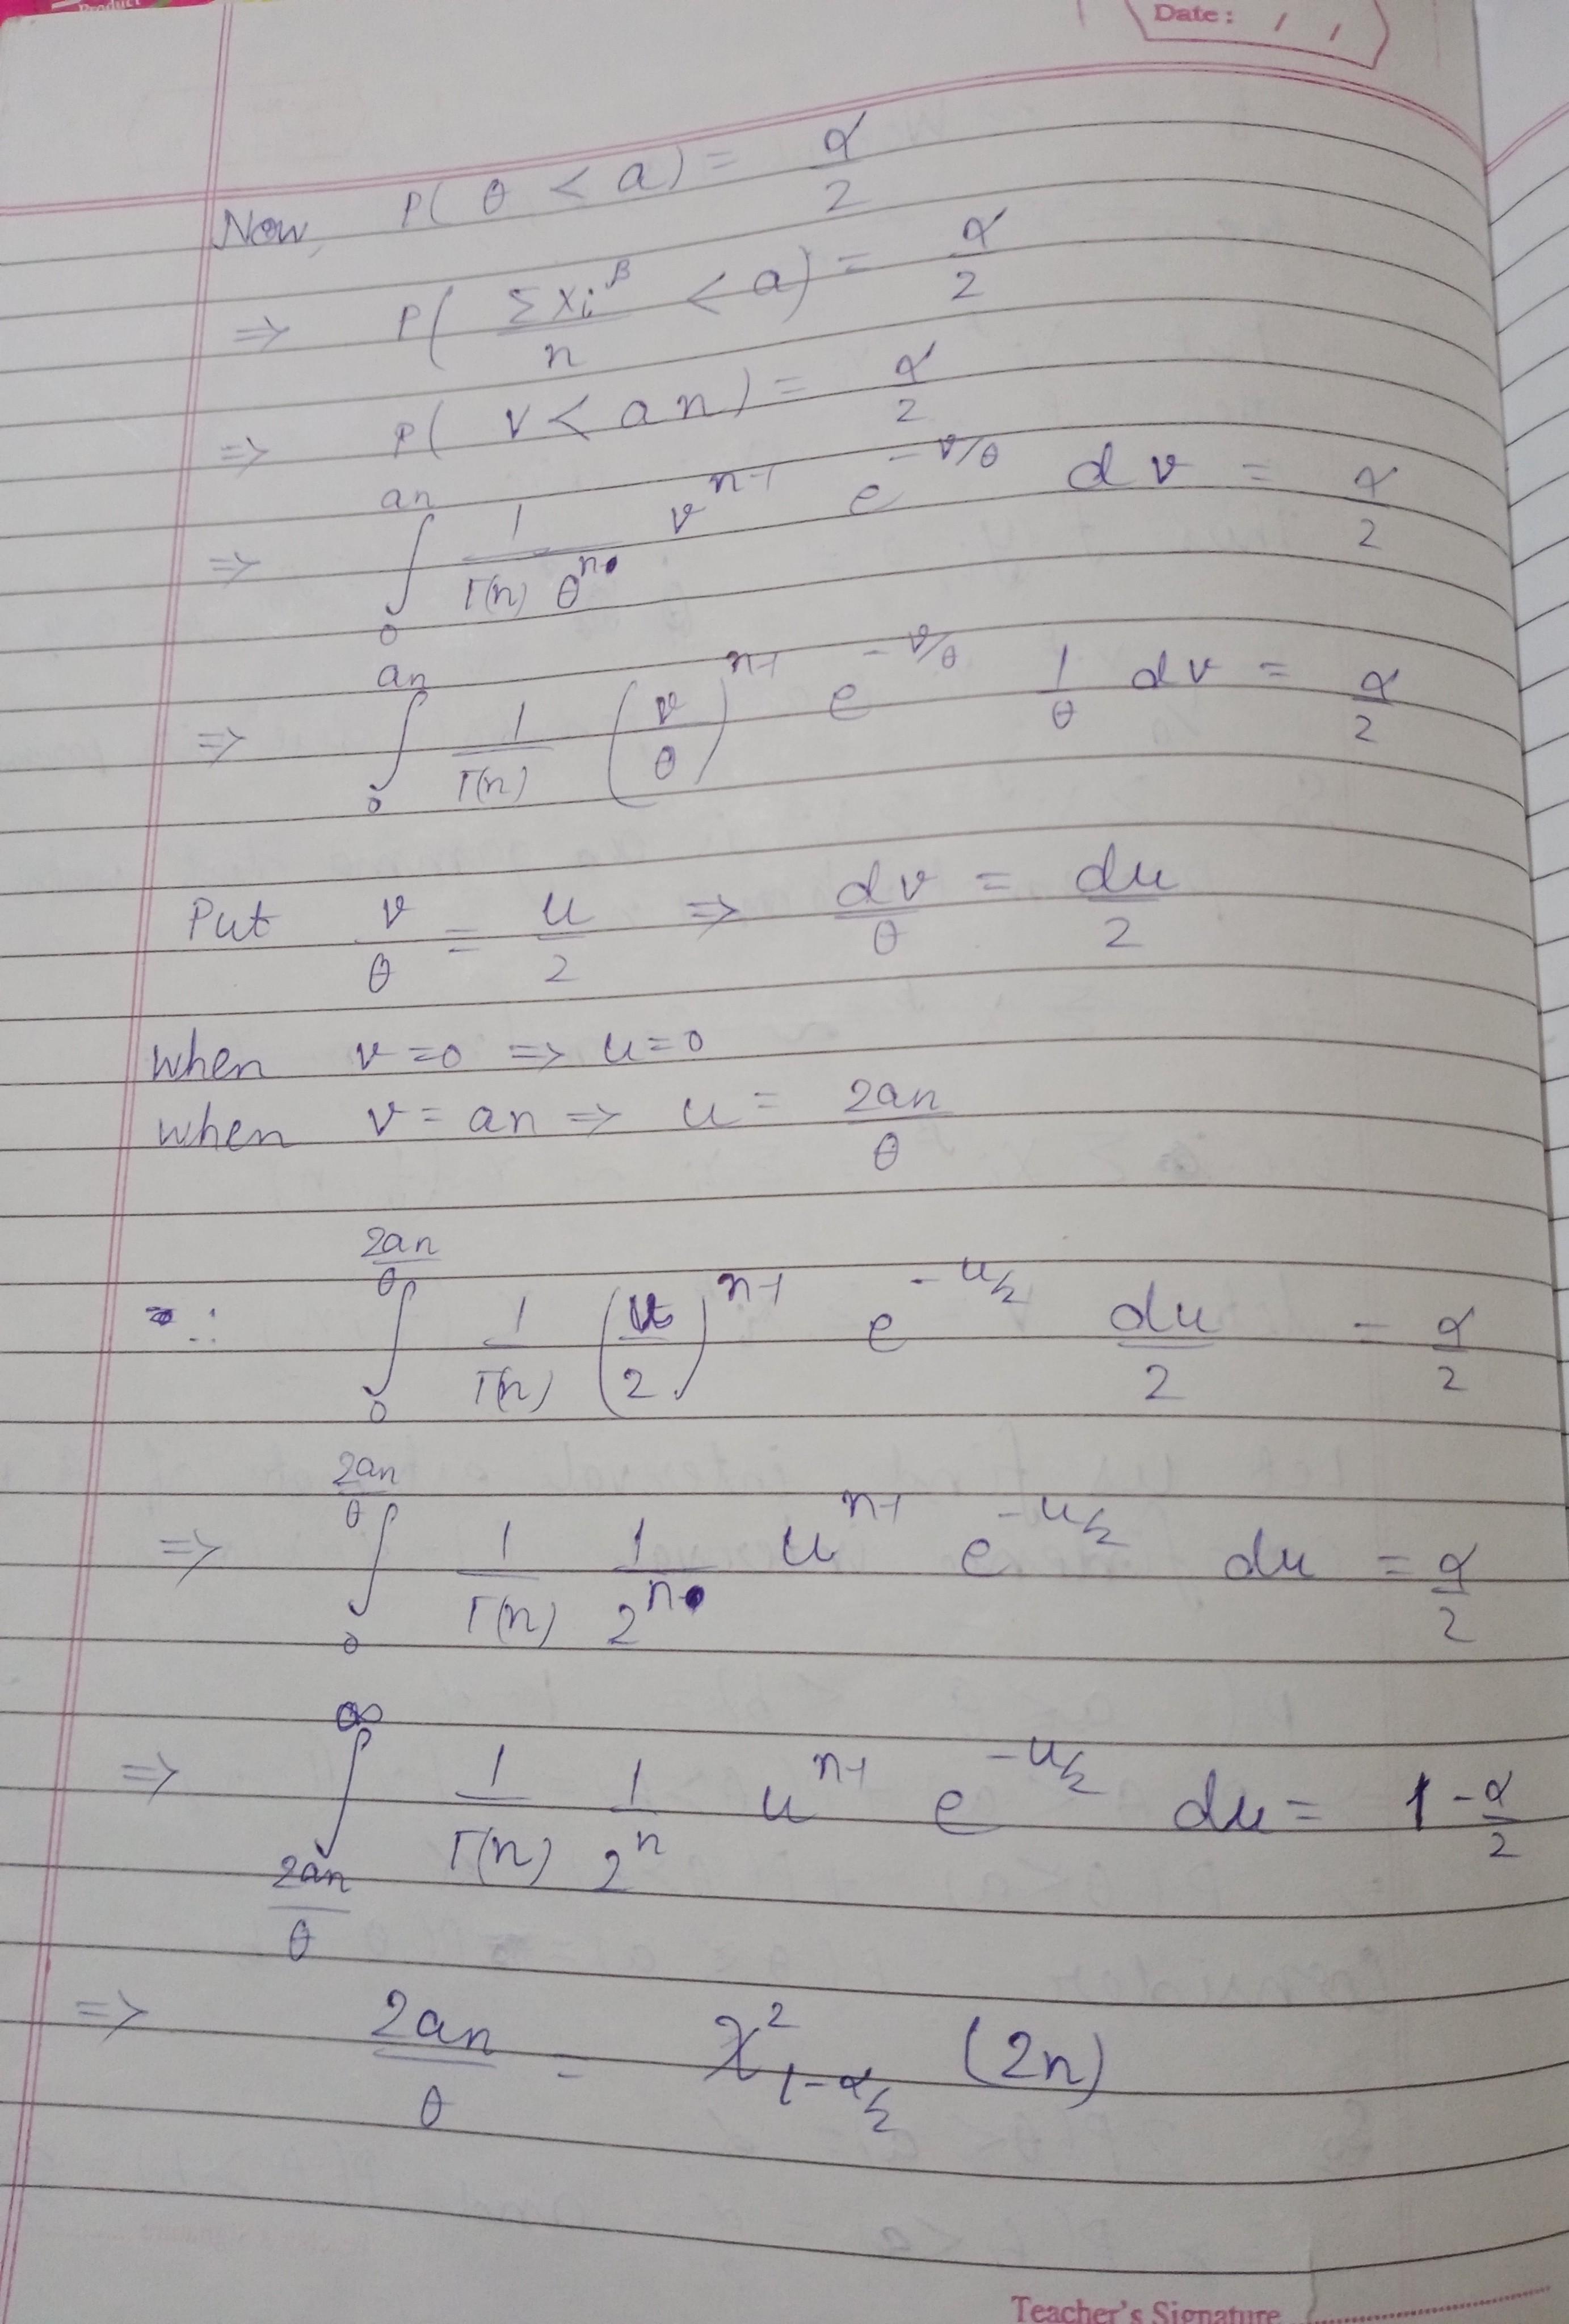 Product
Date: / /
Now, P( θ < a) = α/2
=> P( Σxi^β/n < a) = α/2
=> P( v < an) = α/2
=> ∫_0^{an} 1/(Γ(n) θ^n) v^{n-1} e^{-v/θ} dv = α/2
=> ∫_0^{an} 1/Γ(n) (v/θ)^{n-1} e^{-v/θ} 1/θ dv = α/2
Put v/θ = u/2 => dv/θ = du/2
when v=0 => u=0
when v = an => u = 2an/θ
∴ ∫_0^{2an/θ} 1/Γ(n) (u/2)^{n-1} e^{-u/2} du/2 = α/2
=> ∫_0^{2an/θ} 1/Γ(n) 1/2^n u^{n-1} e^{-u/2} du = α/2
=> ∫_{2an/θ}^∞ 1/Γ(n) 1/2^n u^{n-1} e^{-u/2} du = 1-α/2
=> 2an/θ = χ²_{1-α/2} (2n)
Teacher's Signature